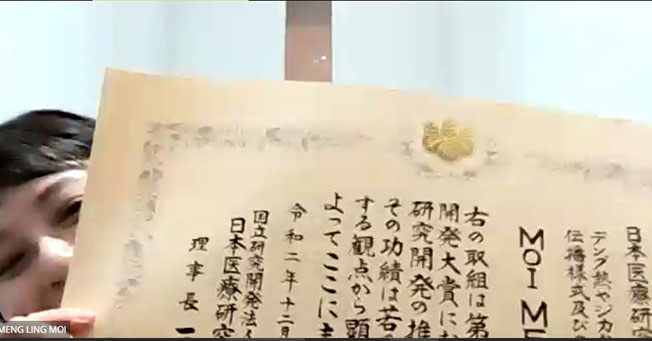 日本医療研
デング熱やジカ
伝播様式及び
MOI ME
右の取組は第
開発大賞にお
研究開発の推
その功績は若
する観点から顕
よってここに
令和二年十二月
国立研究開発法
日本医療研究
理事長
MENG LING MOI